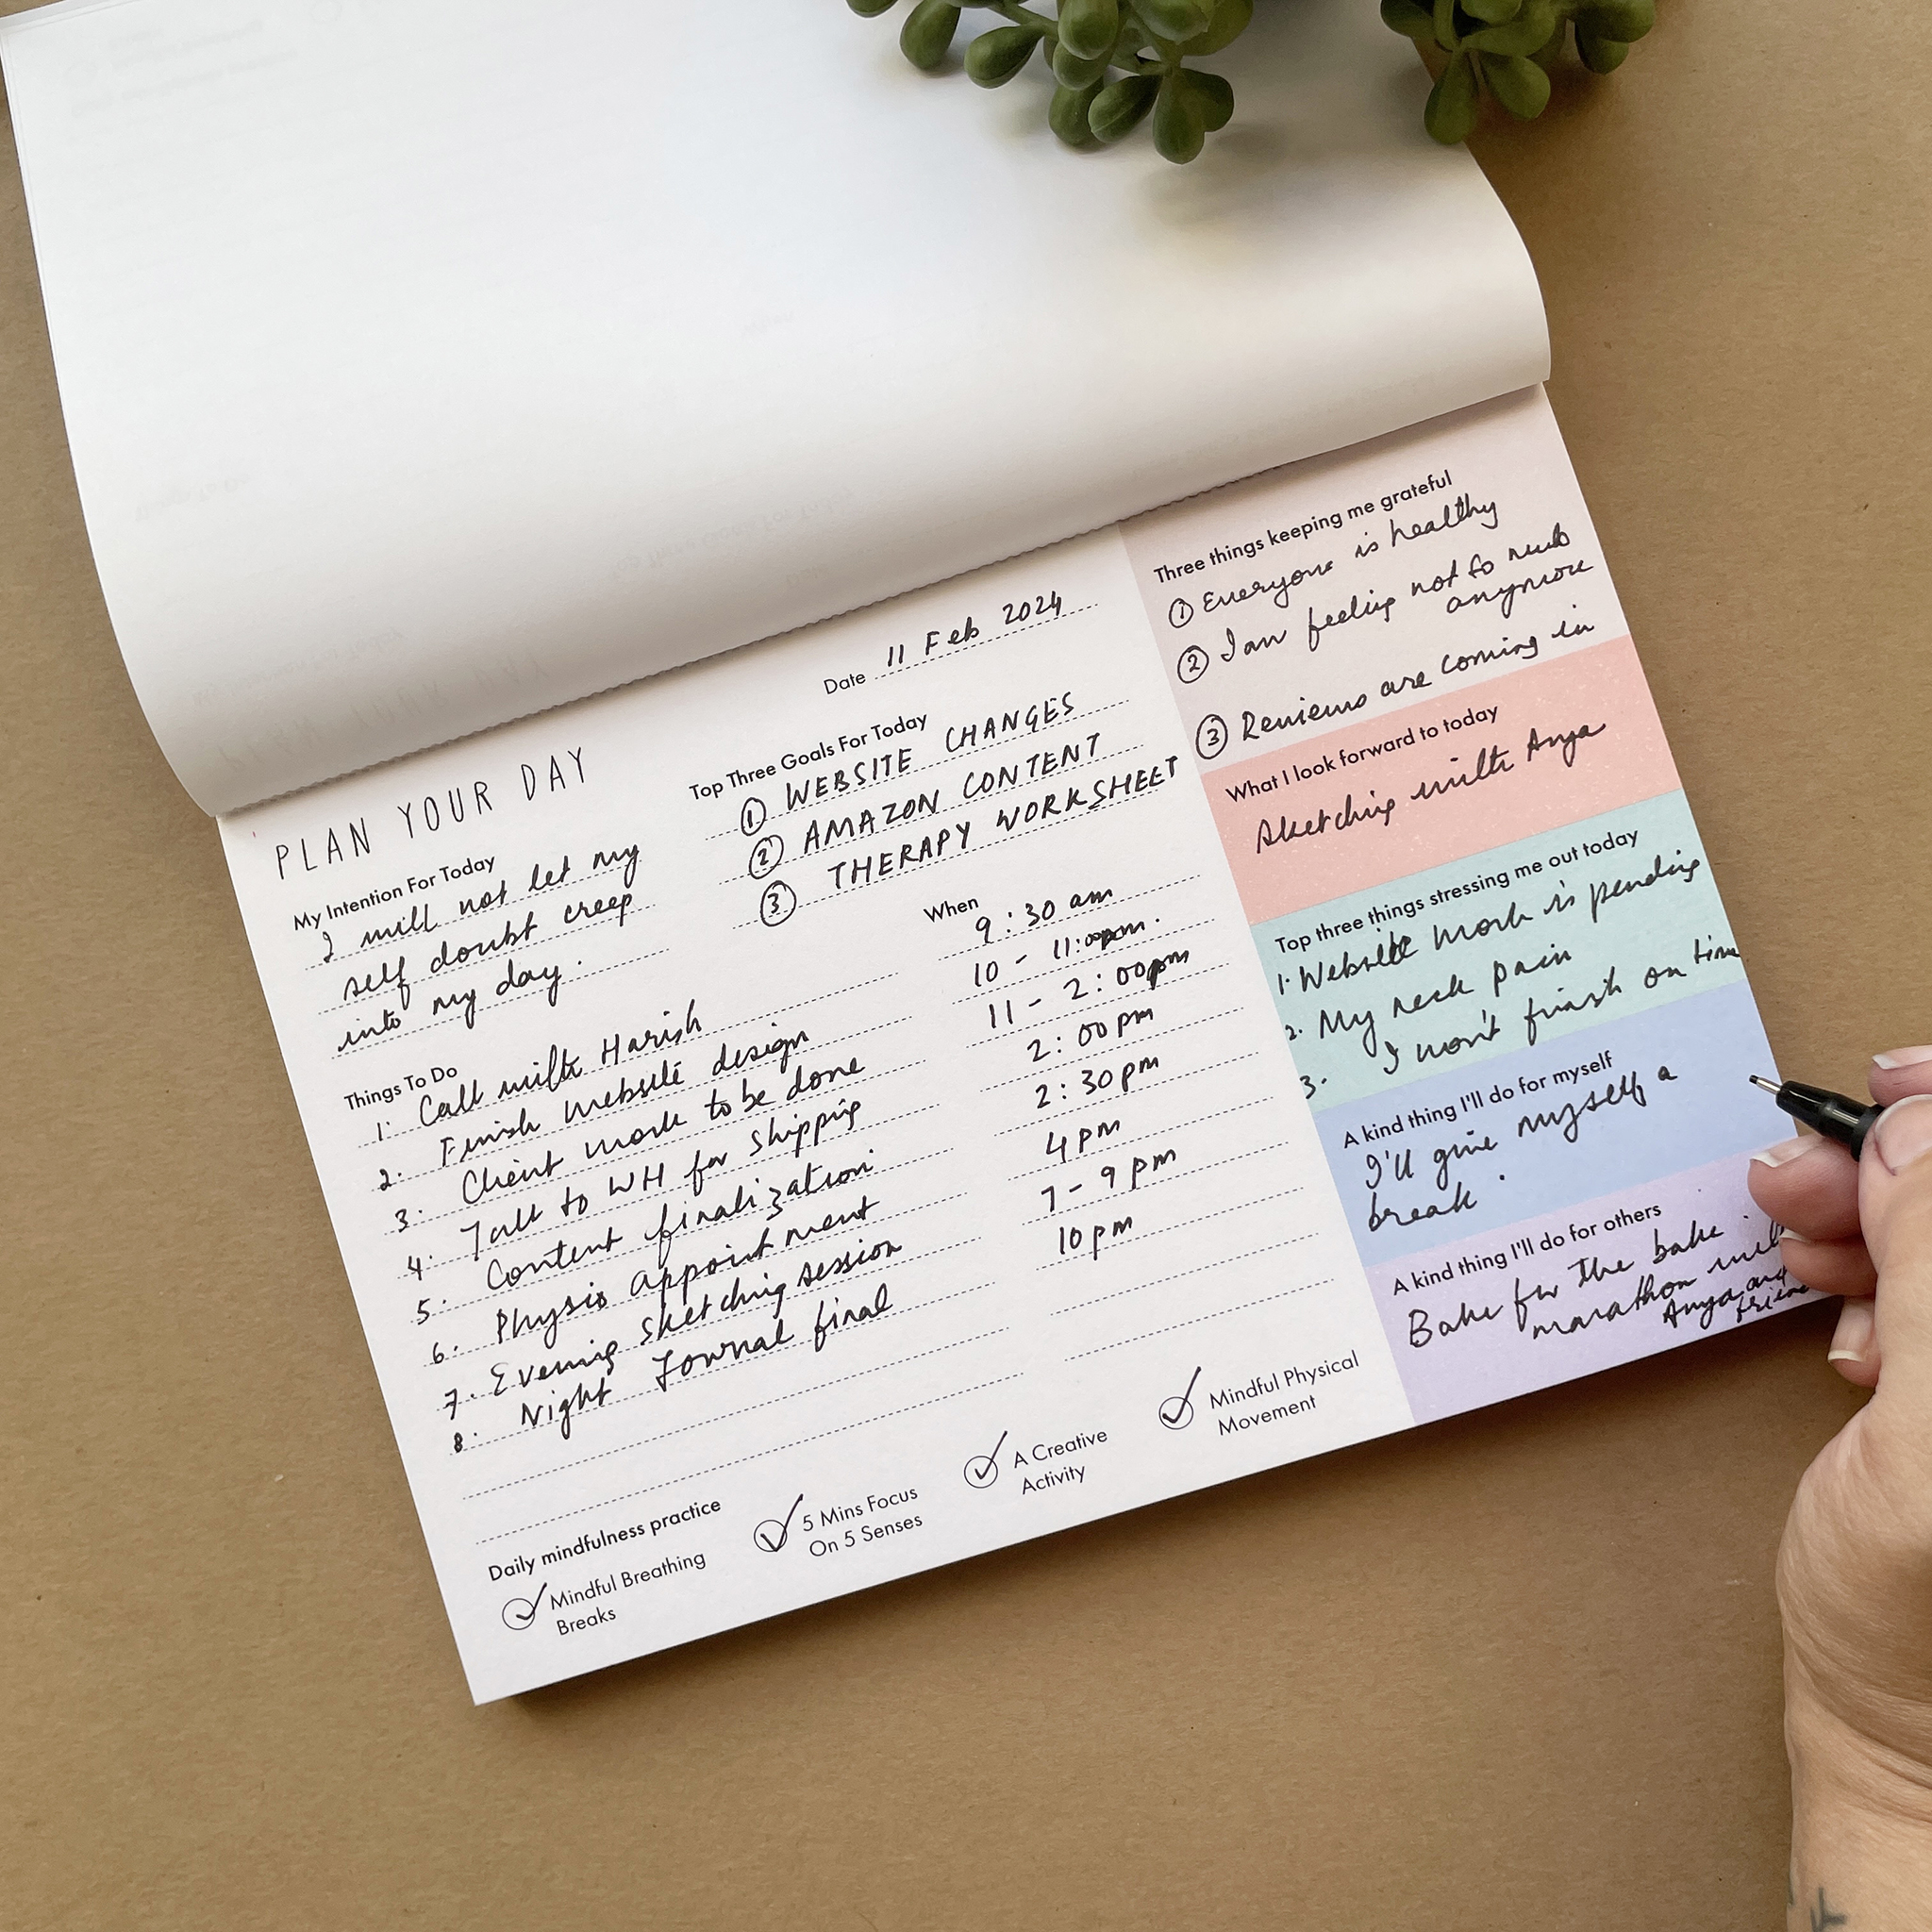 PLAN YOUR DAY
Date 11 Feb 2024
My Intention For Today
I will not let my
self doubt creep
into my day.
Top Three Goals For Today
① WEBSITE CHANGES
② AMAZON CONTENT
③ THERAPY WORKSHEET
Things To Do
When
1. Call with Harish 9:30 am
2. Finish website design 10 - 11:00pm.
3. Client work to be done 11 - 2:00pm
4. Talk to WH for shipping 2:00 pm
5. Content finalization 2:30 pm
6. Physio appointment 4 pm
7. Evening sketching session 7 - 9 pm
8. Night Journal final 10 pm
Daily mindfulness practice
Mindful Breathing
Breaks
5 Mins Focus
On 5 Senses
A Creative
Activity
Mindful Physical
Movement
Three things keeping me grateful
① Everyone is healthy
② I am feeling not so
anymore
③ Reviews are coming in
What I look forward to today
Sketching with Anya
Top three things stressing me out today
1. Website work is pending
2. My neck pain
3. I won't finish on time
A kind thing I'll do for myself
I'll give myself a
break.
A kind thing I'll do for others
Bake for the bake
marathon
Anya and